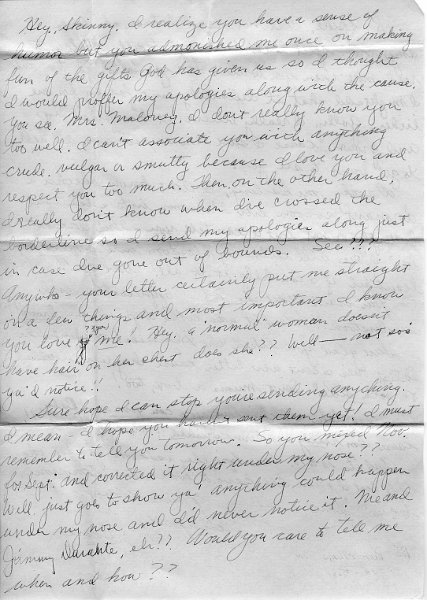 Hey, Skinny. I realize you have a sense of
humor but you admonished me once on making
fun of the gifts God has given us so I thought
I would proffer my apologies along with the cause.
You see, Mrs. Maloney, I don't really know you
too well. I can't associate you with anything
crude, vulgar or smutty because I love you and
respect you too much. Then, on the other hand,
I really don't know when I've crossed the
borderline so I send my apologies along just
in case I've gone out of bounds. See???
Anywho - your letter certainly put me straight
on a few things and most important I know
you love me. Hey, a "normal" woman doesn't
have hair on her chest does she?? Well — not so's
ya'd notice!!
Sure hope I can stop you're sending anything.
I mean - I hope you haven't sent them yet! I must
remember to tell you tomorrow. So you mixed Nov.
for Sept. and corrected it right under my nose??
Well, just goes to show ya' anything could happen
under my nose and I'd never notice it. Me and
Jimmy Durante, eh?? Would you care to tell me
when and how??